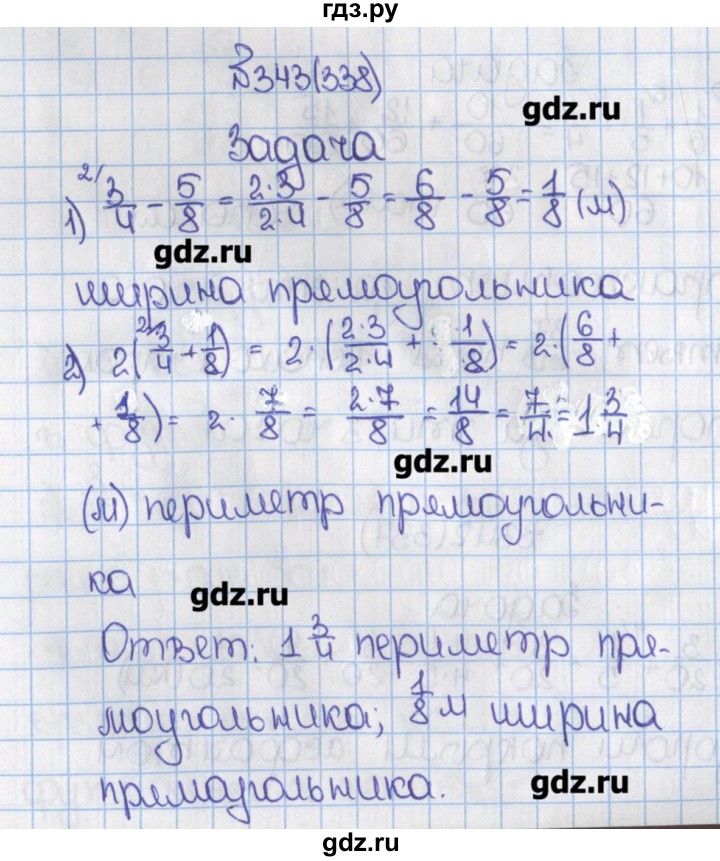 гдз.ру
№343(338)
gdz.ru
Задача
1) 2/ 3/4 - 5/8 = 2·3/2·4 - 5/8 = 6/8 - 5/8 = 1/8 (м)
gdz.ru
ширина прямоугольника
2) 2(2/ 3/4 + 1/8) = 2·(2·3/2·4 + 1/8) = 2·(6/8 +
+ 1/8) = 2· 7/8 = 2·7/8 = 14/8 = 7/4 = 1 3/4
gdz.ru
(м) периметр прямоугольни-
ка
gdz.ru
Ответ: 1 3/4 периметр пря-
моугольника; 1/8 м ширина
прямоугольника.
gdz.ru
gdz.ru